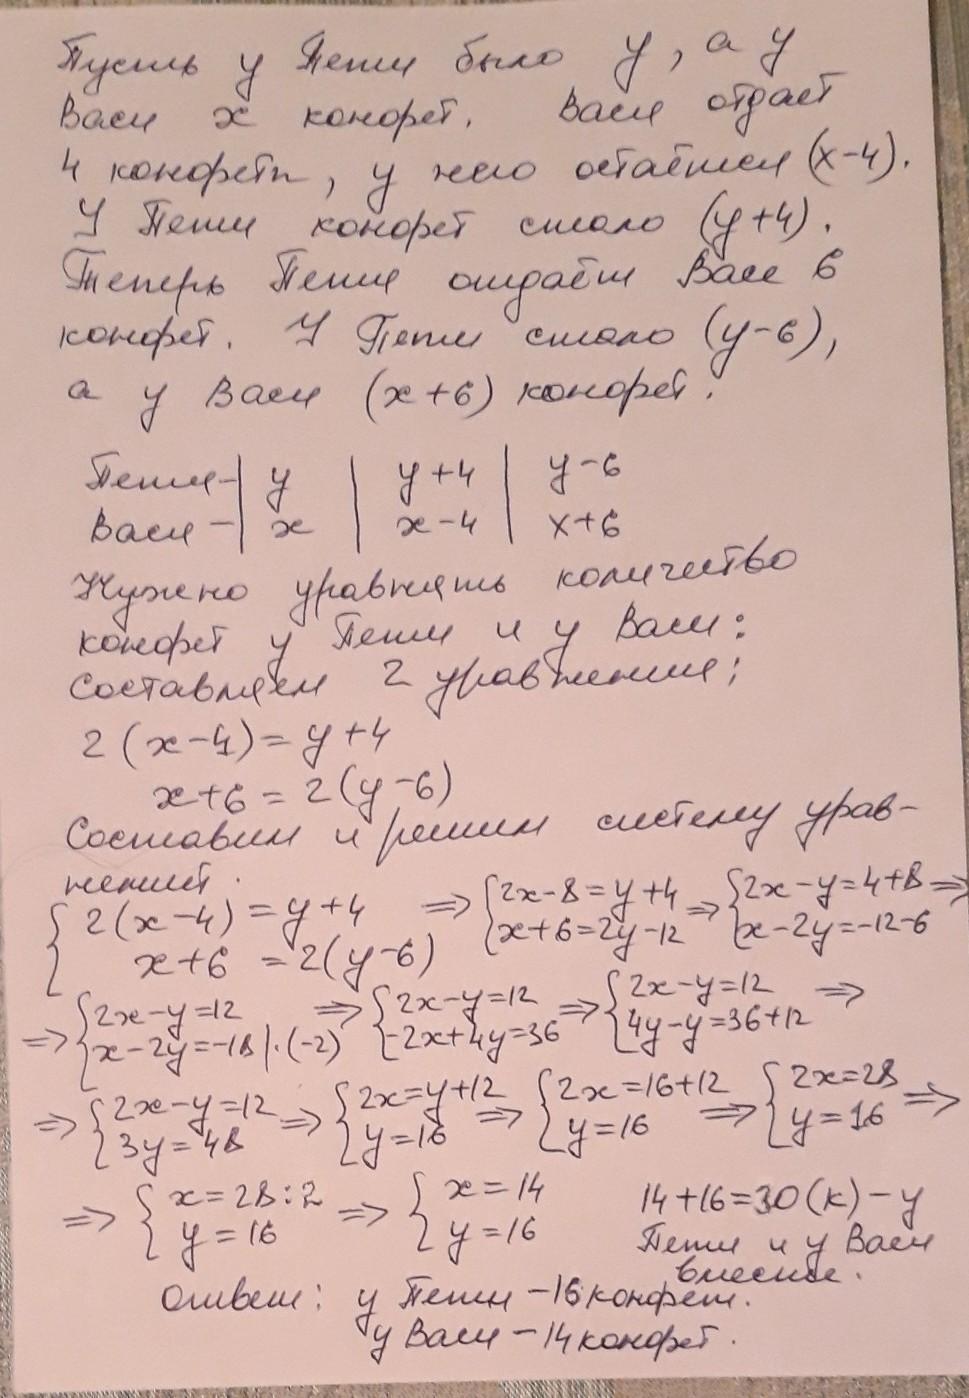 Пусть у Пети было y, а у
Васи x конфет. Вася отдаёт
4 конфеты, у него остаётся (x-4).
У Пети конфет стало (y+4).
Теперь Петя отдаёт Васе 6
конфет. У Пети стало (y-6),
а у Васи (x+6) конфет.
Петя- | y | y+4 | y-6
Вася - | x | x-4 | x+6
Нужно уравнять количество
конфет у Пети и у Васи:
Составляем 2 уравнения:
2(x-4)= y+4
x+6 = 2(y-6)
Составим и решим систему урав-
нений.
{ 2(x-4) = y+4 => { 2x-8=y+4 => { 2x-y=4+8 =>
x+6 = 2(y-6) x+6=2y-12 x-2y=-12-6
=> { 2x-y=12 => { 2x-y=12 => { 2x-y=12 =>
x-2y=-18 |·(-2) -2x+4y=36 4y-y=36+12
=> { 2x-y=12 => { 2x=y+12 => { 2x=16+12 => { 2x=28 =>
3y=48 y=16 y=16 y=16
=> { x=28:2 => { x=14 14+16=30(к)-у
y=16 y=16 Пети и у Васи
вместе.
Ответ: у Пети -16 конфет.
у Васи -14 конфет.